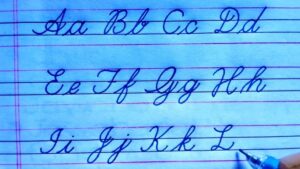 Aa Bb Cc Dd
Ee Ff Gg Hh
Ii Jj Kk L